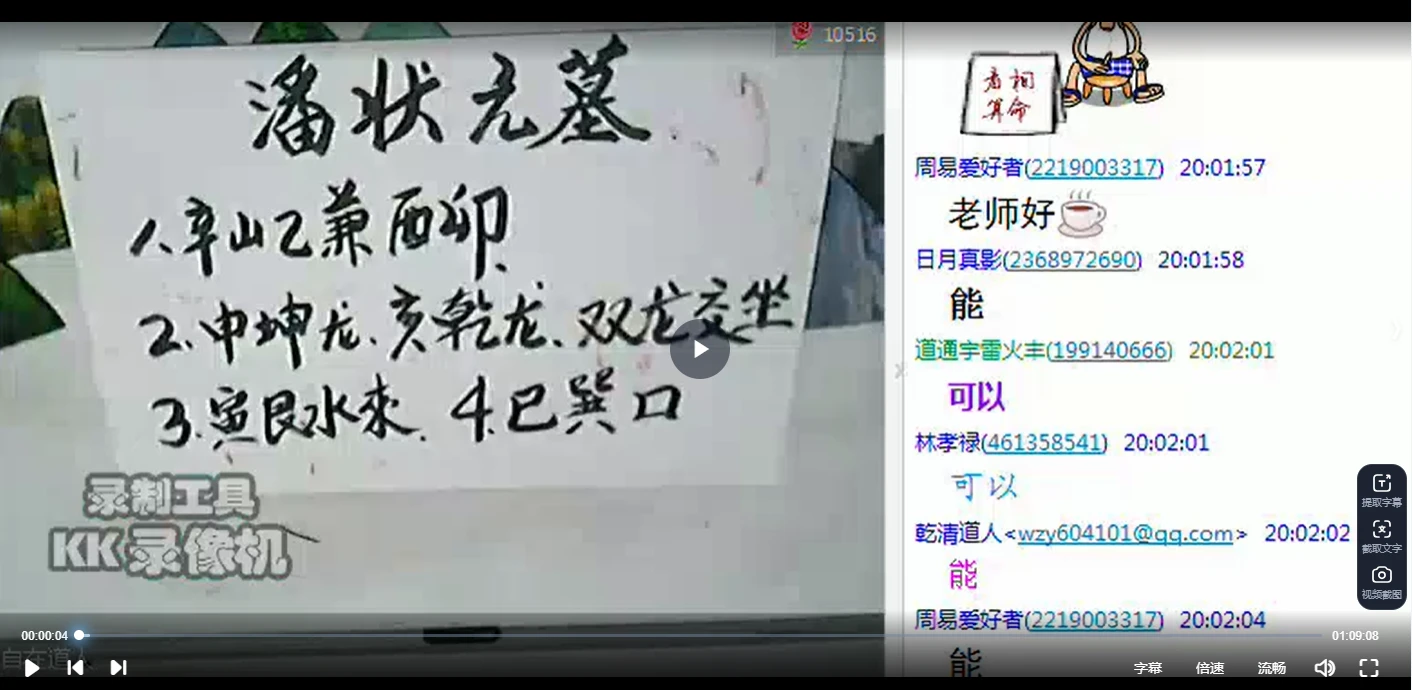 10516
潘状元墓
1、辛山乙兼酉卯、
2、申坤龙、亥乾龙、双龙交坐
3.寅艮水来、4.巳巽口
录制工具
KK录像机
看相
算命
周易爱好者(2219003317) 20:01:57
老师好
日月真影(2368972690) 20:01:58
能
道通宇雷火丰(199140666) 20:02:01
可以
林孝禄(461358541) 20:02:01
可以
乾清道人<wzy604101@qq.com> 20:02:02
能
周易爱好者(2219003317) 20:02:04
能
提取字幕
截取文字
视频截图
00:00:04
01:09:08
自在道人
字幕 倍速 流畅